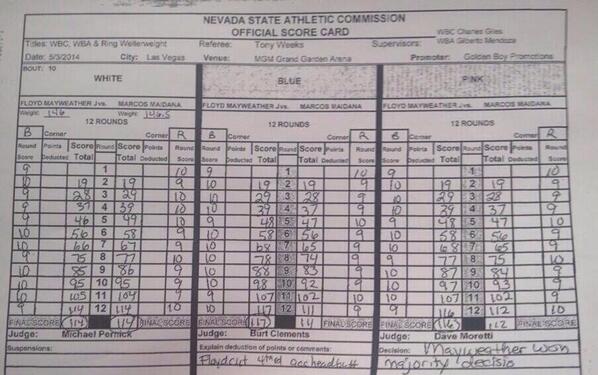 NEVADA STATE ATHLETIC COMMISSION
OFFICIAL SCORE CARD
WBC Charles Giles
Titles: WBC, WBA & Ring Welterweight Referee: Tony Weeks Supervisors: WBA Gilberto Mendoza
Date: 5/3/2014 City: Las Vegas Venue: MGM Grand Garden Arena Promoter: Golden Boy Promotions
BOUT: 10
WHITE BLUE PINK
FLOYD MAYWEATHER Jvs. MARCOS MAIDANA FLOYD MAYWEATHER Jvs. MARCOS MAIDANA FLOYD MAYWEATHER Jvs. MARCOS MAIDANA
Weight: 146 Weight: 146.5
12 ROUNDS 12 ROUNDS 12 ROUNDS
B Corner Corner R B Corner Corner R B Corner Corner R
Round Score Points Deducted Score Total Round Score Total Points Deducted Round Score Round Score Points Deducted Score Total Round Score Total Points Deducted Round Score Round Score Points Deducted Score Total Round Score Total Points Deducted Round Score
9 1 10 9 1 10 9 1 10
10 19 2 19 9 10 19 2 19 9 10 19 2 19 9
9 28 3 29 10 10 29 3 28 9 10 29 3 28 9
9 37 4 39 10 10 39 4 37 9 10 39 4 37 9
9 46 5 49 10 9 48 5 47 10 9 48 5 47 10
10 56 6 58 9 10 58 6 56 9 10 58 6 56 9
10 66 7 67 9 10 68 7 65 9 10 68 7 65 9
9 75 8 77 10 10 78 8 74 9 9 77 8 75 10
10 85 9 86 9 10 88 9 83 9 10 87 9 84 9
10 95 10 95 9 10 98 10 92 9 10 97 10 93 9
10 105 11 104 9 9 107 11 102 10 10 107 11 102 9
9 114 12 114 10 10 117 12 111 9 9 116 12 112 10
FINAL SCORE 114 114 FINAL SCORE FINAL SCORE 117 111 FINAL SCORE FINAL SCORE 116 112 FINAL SCORE
Judge: Michael Pernick Judge: Burt Clements Judge: Dave Moretti
Suspensions: Explain deduction of points or comments: Decision: Mayweather won
Floyd cut 4th rd acc headbutt majority decisio